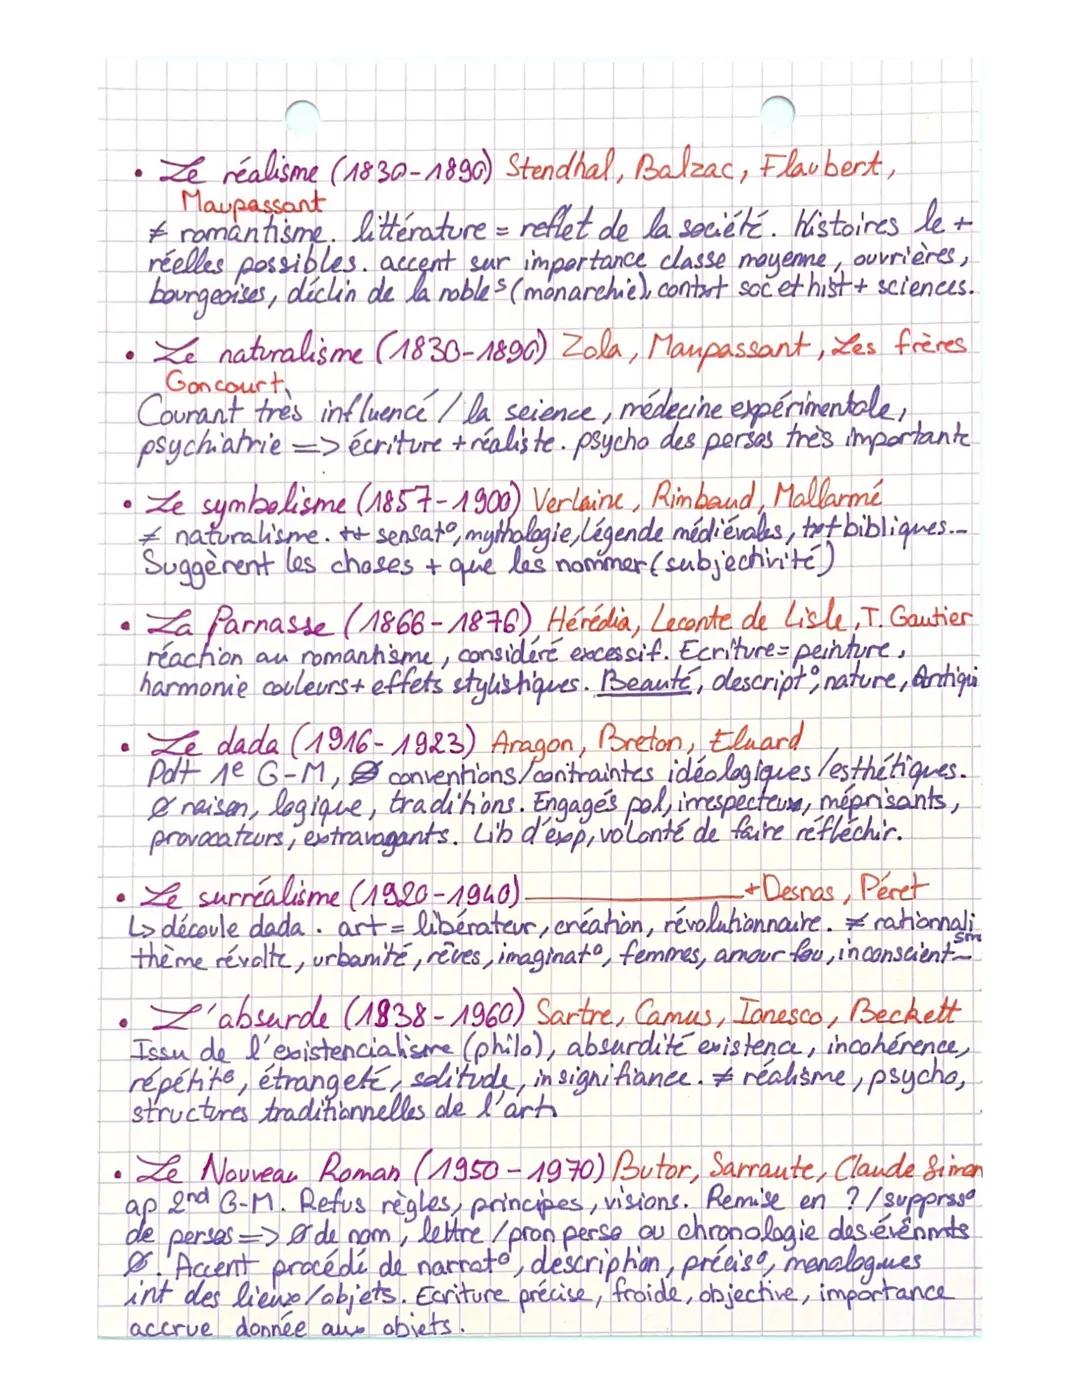 • Le réalisme (1830-1890) Stendhal, Balzac, Flaubert,
Maupassant
≠ romantisme. littérature = reflet de la société. Histoires le +
réelles possibles. accent sur importance classe moyenne, ouvrières,
bourgeoises, déclin de la nobles (monarchie), contxt soc et hist + sciences.
• Le naturalisme (1830-1890) Zola, Maupassant, Les frères
Goncourt,
Courant très influencé / la science, médecine expérimentale,
psychiatrie => écriture + réaliste. psycho des persos très importante
• Le symbolisme (1857-1900) Verlaine, Rimbaud, Mallarmé
≠ naturalisme. tt sensat°, mythologie, légende médiévales, txt bibliques...
Suggèrent les choses + que les nommer (subjectivité)
• La Parnasse (1866-1876) Hérédia, Leconte de Lisle, T. Gautier
réaction au romantisme, considéré excessif. Ecriture = peinture,
harmonie couleurs + effets stylistiques. Beauté, descript°, nature, Antiqui
• Le dada (1916-1923) Aragon, Breton, Eluard
Pdt 1e G-M, Ø conventions/contraintes idéologiques/esthétiques.
Ø raison, logique, traditions. Engagés pol, irrespecteux, méprisants,
provocateurs, extravagants. Lib d'exp, volonté de faire réfléchir.
• Le surréalisme (1920-1940) ——— + Desnos, Péret
↳ découle dada. art = libérateur, création, révolutionnaire. ≠ rationnali
sm
thème révolte, urbanité, rêves, imaginat°, femmes, amour fou, inconscient
• L'absurde (1838-1960) Sartre, Camus, Ionesco, Beckett
Issu de l'existencialisme (philo), absurdité existence, incohérence,
répétit°, étrangeté, solitude, insignifiance. ≠ réalisme, psycho,
structures traditionnelles de l'art
• Le Nouveau Roman (1950-1970) Butor, Sarraute, Claude Simon
ap 2nd G-M. Refus règles, principes, visions. Remise en ? / supprss°
de persos => Ø de nom, lettre / pron perso ou chronologie des évènmts
Ø. Accent procédé de narrat°, description, précis°, monologues
int des lieux/objets. Ecriture précise, froide, objective, importance
accrue donnée aux objets.